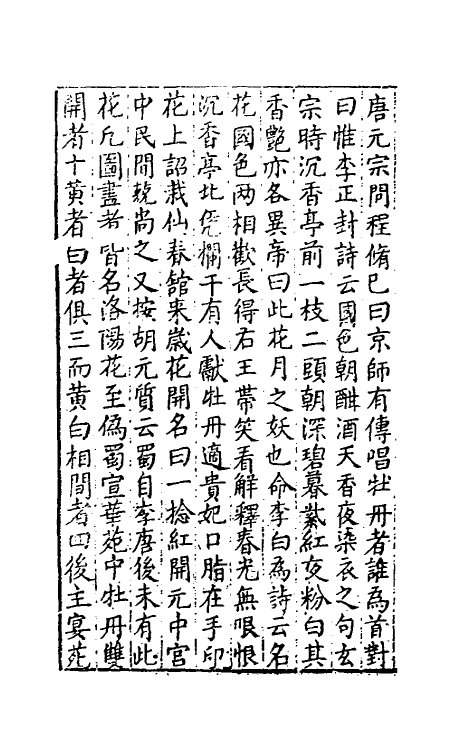 唐元宗問程脩巳曰京師有傳唱牡丹者誰為首對
曰惟李正封詩云國色朝酣酒天香夜染衣之句玄
宗時沉香亭前一枝二頭朝深碧暮紫紅夜粉白其
香艷亦各異帝曰此花月之妖也命李白為詩云名
花國色两相歡長得君王帶笑看解釋春光無限恨
沉香亭北凭欄干有人獻牡丹適貴妃口脂在手印
花上詔栽仙春舘来歲花開名曰一捻紅開元中宮
中民間競尚之又按胡元質云蜀自李唐後未有此
花凢圖畫者皆名洛陽花至僞蜀宣華苑中牡丹雙
開者十黃者白者俱三而黄白相間者四後主宴苑